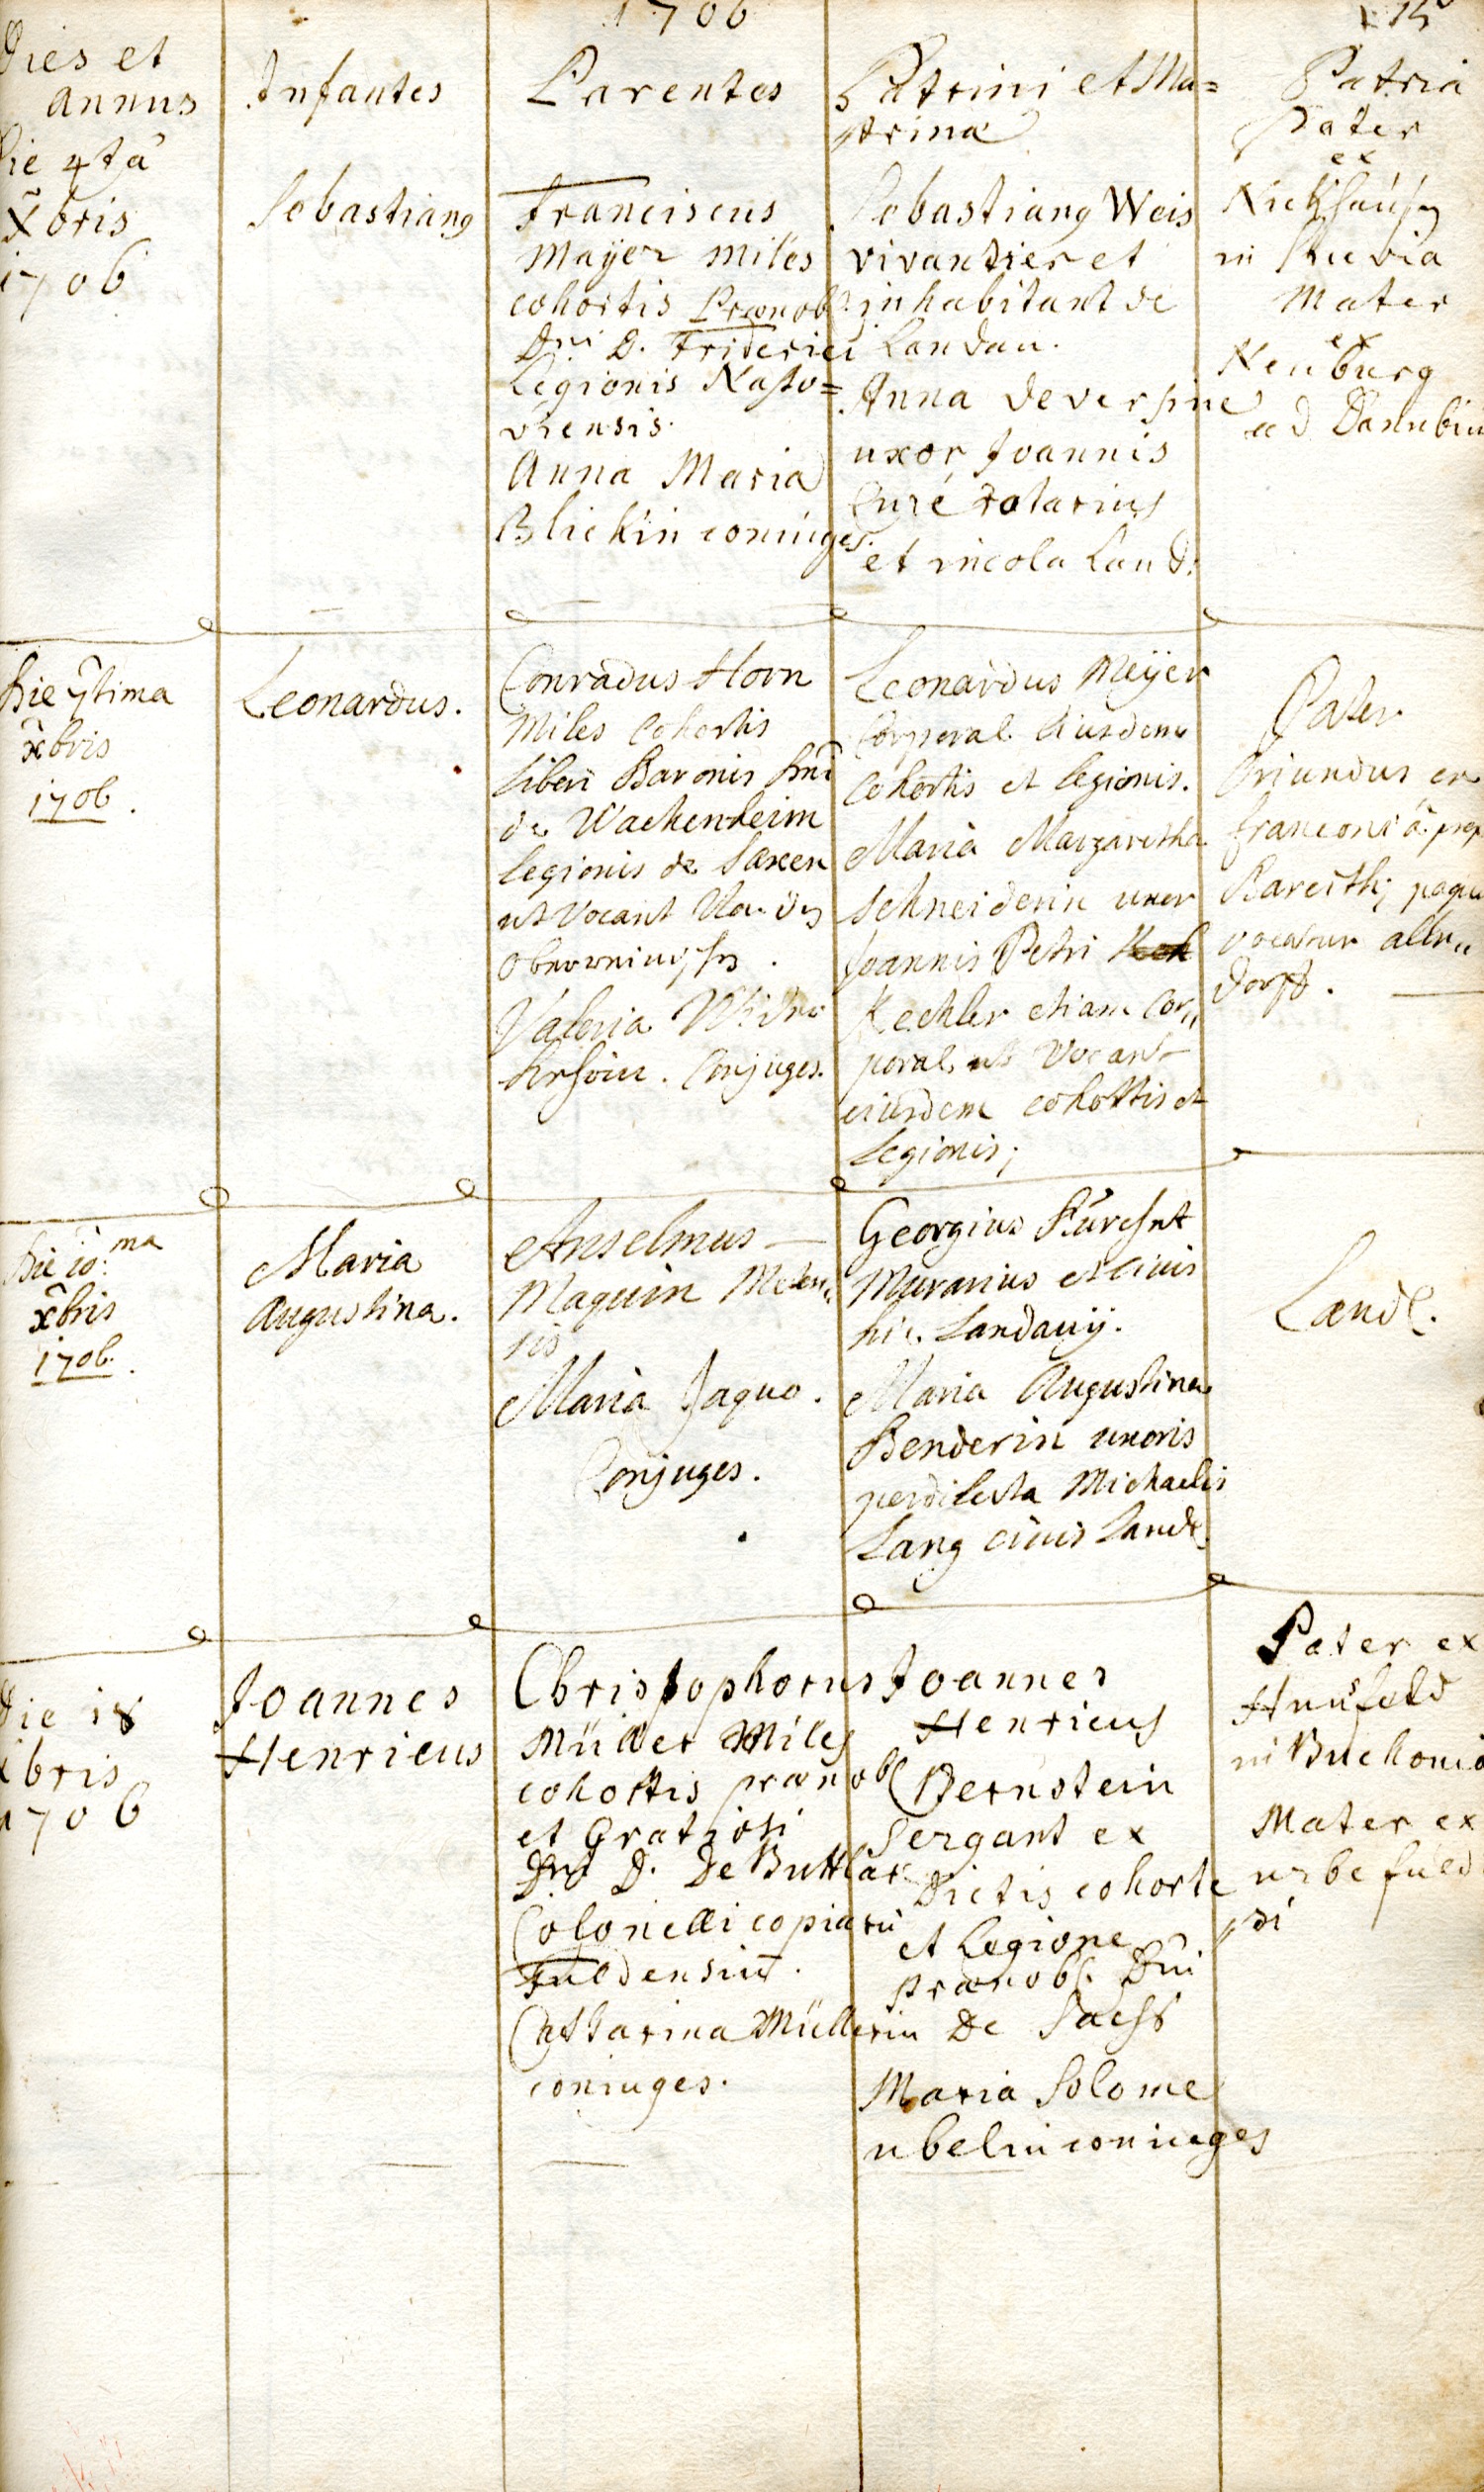 1706
15
Dies et
annus
Infantes
Parentes
Patrini et Ma=
trina
Patria
Die 4tâ
Xbris
1706
Sebastiang
Franciscus
Mayer miles
cohortis Prænob.
Dni D. Friderici
Legionis
Anna Maria
Blickin coniuges.
Sebastiang Weis
vivantier et
inhabitant de
Landau.
Anna deversine
uxor Joannis
Curé
et incola Land:
Pater
ex
in Suevia
Mater
ex
Neuburg
ad Danubiu
Die 7tima
xbris
1706.
Leonardus.
Conradus Horn
Miles Cohortis
liberi Baronis Dni
de Wachenheim
legionis de Saxen
ut vocant
Valeria
Conjuges.
Leonardus Meÿer
Corporal. eiusdem
Cohortis et legionis.
Maria Margaretha
Schneiderin uxor
Joannis Petri
Kechler etiam Cor„
poral, ut vocant
eiusdem cohortis et
Legionis;
Pater
Oriundus ex
franconiâ prop
pagus
vocatur allr„
dorff.
Die 10:ma
xbris
1706.
Maria
Augustina.
Anselmus
Maquin Meten„
sis
Maria Jaquo.
Conjuges.
Georgius
Murarius et Civis
hic Landavij.
Maria Augustina
Benderin uxoris
perdilecta Michaelis
Lang civis Land.
Land.
Die 18
xbris
1706
Joannes
Henricus
Christophorus
Müller Miles
cohortis prænobl
et Gratiosi
Dni D. De Buttlar
Colonelli copiarū
Fuldensium.
Catharina Müllerin
coniuges.
Joannes
Henricus
Bernstein
Sergant ex
Dictis cohorte
et Legione
prænobl. Dni
De
Maria Solome
ubelin coniuges
Pater ex
Hunfeld
in Buchonia
Mater ex
urbe fuld